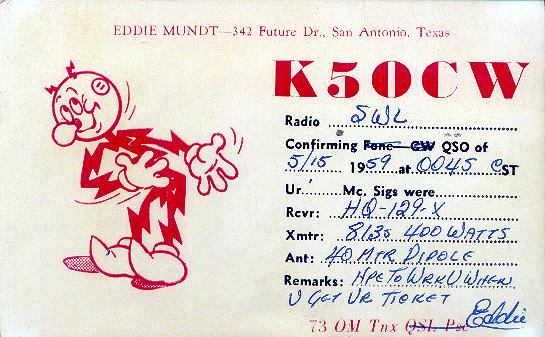 EDDIE MUNDT—342 Future Dr., San Antonio, Texas
K5OCW
Radio SWL
Confirming Fone CW QSO of
5/15 1959 at 0045 CST
Ur...... Mc. Sigs were
Rcvr: HQ-129-X
Xmtr: 813s 400 WATTS
Ant: 40 MTR DIPOLE
Remarks: HPE TO WRK U WHEN
U GET UR TICKET
73 OM Tnx QSL Pse Eddie